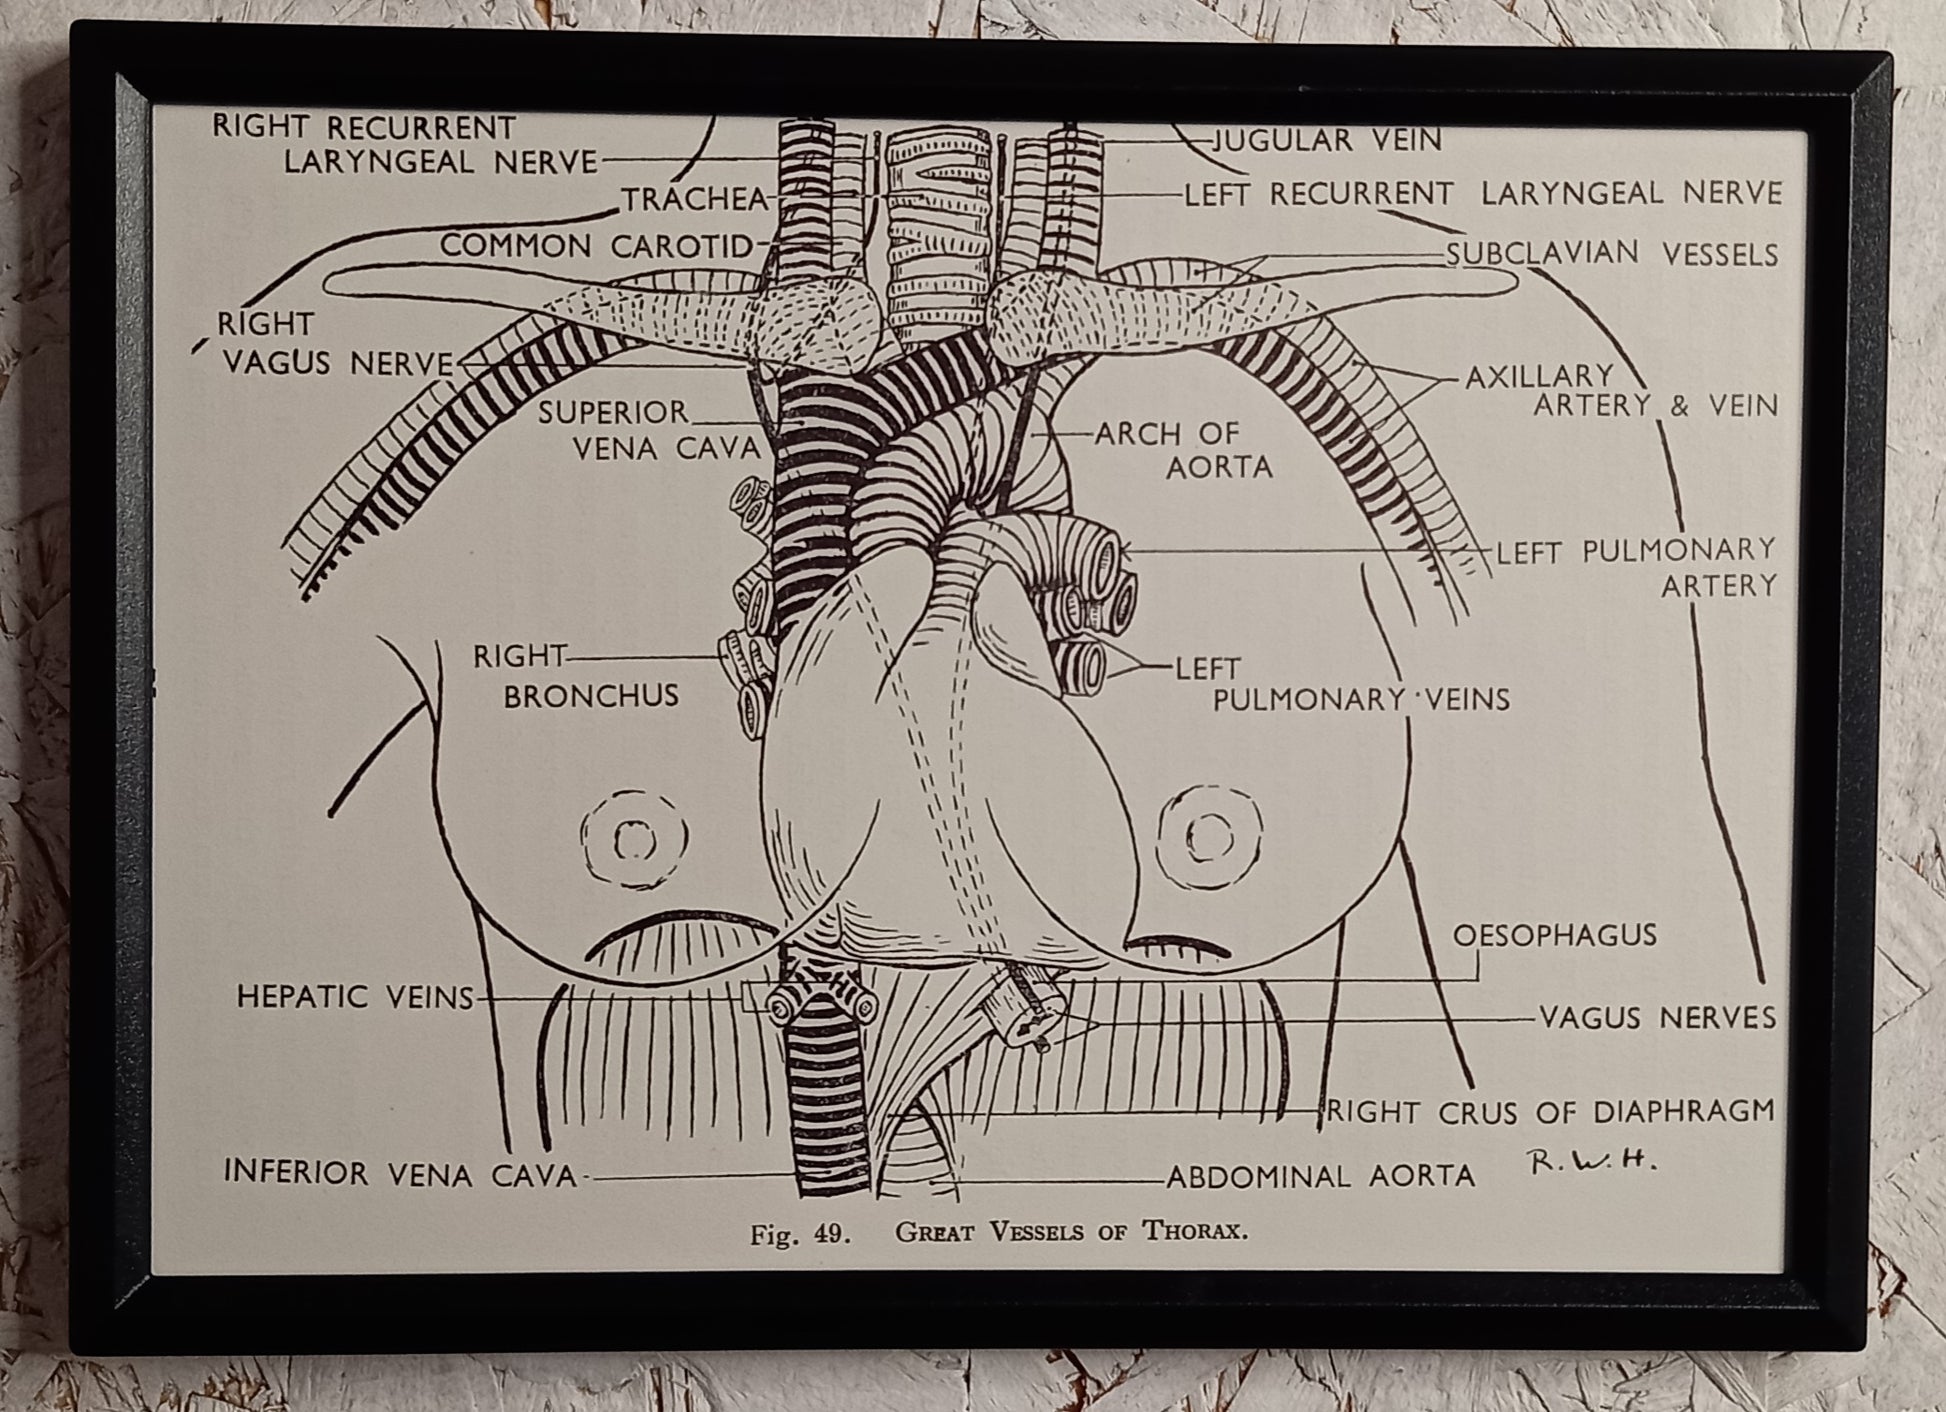 RIGHT RECURRENT
LARYNGEAL NERVE
TRACHEA
COMMON CAROTID
RIGHT
VAGUS NERVE
SUPERIOR
VENA CAVA
RIGHT
BRONCHUS
HEPATIC VEINS
INFERIOR VENA CAVA
JUGULAR VEIN
LEFT RECURRENT LARYNGEAL NERVE
SUBCLAVIAN VESSELS
AXILLARY
ARTERY & VEIN
ARCH OF
AORTA
LEFT PULMONARY
ARTERY
LEFT
PULMONARY VEINS
OESOPHAGUS
VAGUS NERVES
RIGHT CRUS OF DIAPHRAGM
ABDOMINAL AORTA
R.W.H.
Fig. 49. GREAT VESSELS OF THORAX.